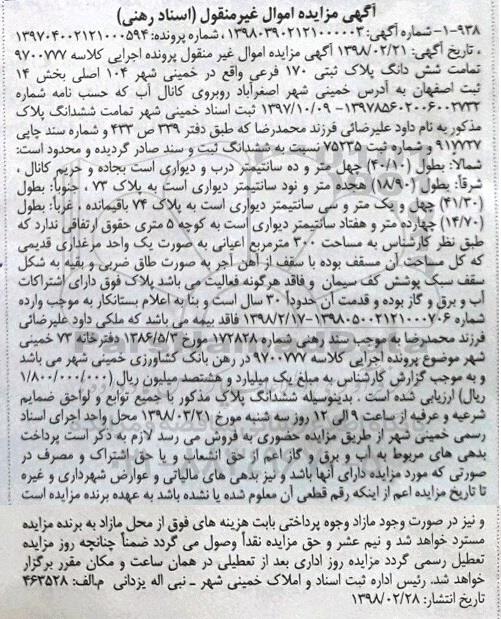 آگهی مزایده اموال غیرمنقول (اسناد رهنی)
۱-۹۳۸- شماره آگهی: ۱۳۹۸۰۳۹۰۲۱۲۱۰۰۰۰۰۳ ، شماره پرونده: ۱۳۹۷۰۴۰۰۲۱۲۱۰۰۰۵۹۴
، تاریخ آگهی: ۱۳۹۸/۰۲/۲۱ آگهی مزایده اموال غیر منقول پرونده اجرایی کلاسه ۹۷۰۰۷۷۷
تمامت شش دانگ پلاک ثبتی ۱۷۰ فرعی واقع در خمینی شهر ۱۰۴ اصلی بخش ۱۴
ثبت اصفهان به آدرس خمینی شهر اصغرآباد روبروی کانال آب که حسب نامه شماره
۱۳۹۷۸۵۶۰۲۰۰۶۰۰۲۷۳۲- ۱۳۹۷/۱۰/۰۹ ثبت اسناد خمینی شهر تمامت ششدانگ پلاک
مذکور به نام داود علیرضائی فرزند محمدرضا که طبق دفتر ۳۳۹ ص ۴۳۳ و شماره سند چاپی
۹۱۷۷۲۷ و شماره ثبت ۷۵۲۳۵ نسبت به ششدانگ ثبت و سند صادر گردیده و محدود است:
شمالا: بطول (۴۰/۱۰) چهل متر و ده سانتیمتر درب و دیواری است بجاده و حریم کانال ،
شرقا: بطول (۱۸/۹۰) هجده متر و نود سانتیمتر دیواری است به پلاک ۷۳ ، جنوبا: بطول
(۴۱/۳۰) چهل و یک متر و سی سانتیمتر دیواری است به پلاک ۷۴ باقیمانده ، غربا: بطول
(۱۴/۷۰) چهارده متر و هفتاد سانتیمتر دیواری است به کوچه ۵ متری حقوق ارتفاقی ندارد که
طبق نظر کارشناس به مساحت ۳۰۰ مترمربع اعیانی به صورت یک واحد مرغداری قدیمی
که کل مساحت آن مسقف بوده با سقف از آهن آجر به صورت طاق ضربی و بقیه به شکل
سقف سبک پوشش کف سیمان و فاقد هرگونه فعالیت می باشد پلاک فوق دارای اشتراکات
آب و برق و گاز بوده و قدمت آن حدوداً ۳۰ سال است و بنا به اعلام بستانکار به موجب وارده
شماره ۱۳۹۸۰۵۰۰۲۱۲۱۰۰۰۷۰۶- ۱۳۹۸/۲/۱۷ فاقد بیمه می باشد که ملکی داود علیرضائی
فرزند محمدرضا به موجب سند رهنی شماره ۱۷۲۸۲۸ مورخ ۱۳۸۶/۵/۳ دفترخانه ۷۳ خمینی
شهر موضوع پرونده اجرایی کلاسه ۹۷۰۰۷۷۷ در رهن بانک کشاورزی خمینی شهر می باشد
و به موجب گزارش کارشناس به مبلغ یک میلیارد و هشتصد میلیون ریال (۱/۸۰۰/۰۰۰/۰۰۰
ریال) ارزیابی شده است . بدینوسیله ششدانگ پلاک مذکور با جمیع توابع و لواحق ضمایم
شرعیه و عرفیه از ساعت ۹ الی ۱۲ روز سه شنبه مورخ ۱۳۹۸/۰۳/۲۱ محل واحد اجرای اسناد
رسمی خمینی شهر از طریق مزایده حضوری به فروش می رسد لازم به ذکر است پرداخت
بدهی های مربوط به آب و برق و گاز اعم از حق انشعاب و یا حق اشتراک و مصرف در
صورتی که مورد مزایده دارای آنها باشد و نیز بدهی های مالیاتی و عوارض شهرداری و غیره
تا تاریخ مزایده اعم از اینکه رقم قطعی آن معلوم شده یا نشده باشد به عهده برنده مزایده است
و نیز در صورت وجود مازاد وجوه پرداختی بابت هزینه های فوق از محل مازاد به برنده مزایده
مسترد خواهد شد و نیم عشر و حق مزایده نقداً وصول می گردد ضمناً چنانچه روز مزایده
تعطیل رسمی گردد مزایده روز اداری بعد از تعطیلی در همان ساعت و مکان مقرر برگزار
خواهد شد. رئیس اداره ثبت اسناد و املاک خمینی شهر ـ نبی اله یزدانی م.الف: ۴۶۳۵۲۸
تاریخ انتشار: ۱۳۹۸/۰۲/۲۸